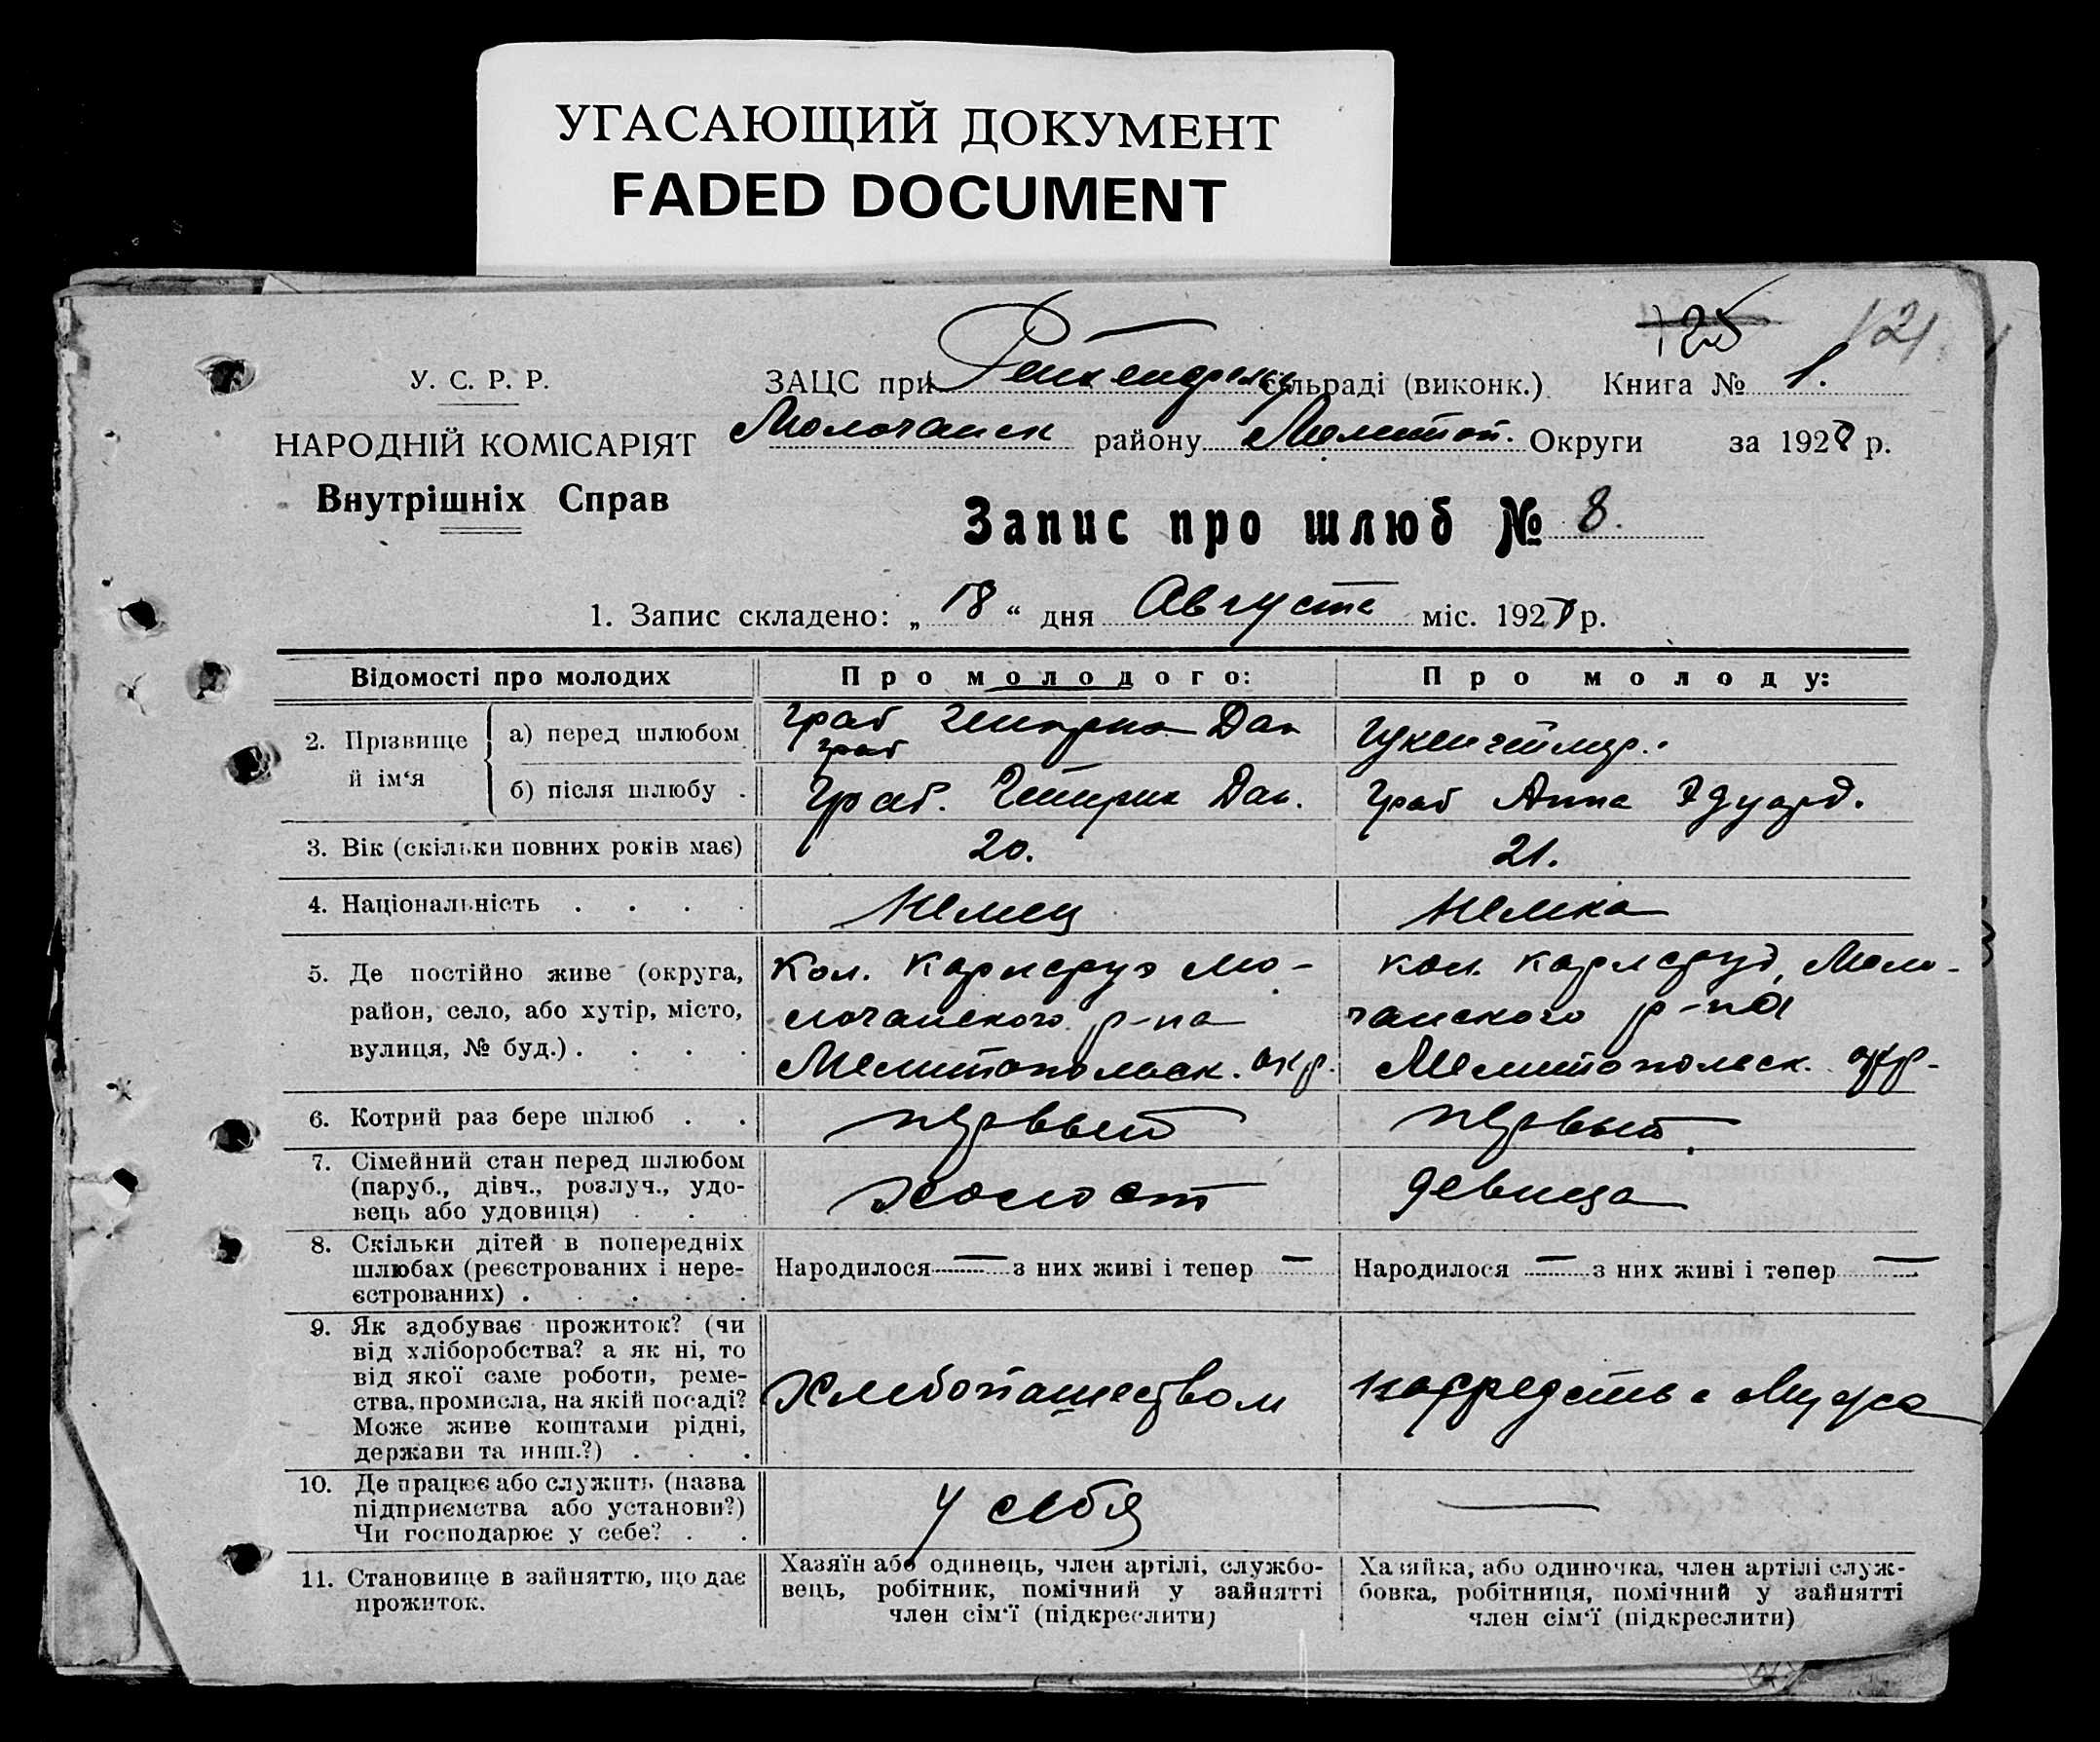 УГАСАЮЩИЙ ДОКУМЕНТ
FADED DOCUMENT
125 121
У. С. Р. Р.
ЗАЦС при сільраді (виконк.) Книга № 1.
НАРОДНІЙ КОМІСАРІЯТ
Молочанск району Мелитоп. Округи за 1928 р.
Внутрішніх Справ
Запис про шлюб № 8.
1. Запис складено: „ 18 “ дня Августа міс. 1928 р.
Відомості про молодих
Про молодого:
Про молоду:
2. Прізвище й ім‘я
а) перед шлюбом
Граб Генрих Дан
б) після шлюбу .
Граб. Генрих Дан.
Граб Анна Эдуард.
3. Вік (скільки повних років має)
20.
21.
4. Національність . . . .
Немец
Немка
5. Де постійно живе (округа,
район, село, або хутір, місто,
вулиця, № буд.) . . . .
Кол. Карлсруэ Мо-
лочанского р-на
Мелитопольск. окр.
кол. Карлсруэ, Моло-
чанского р-на
Мелитопольск. окр.
6. Котрий раз бере шлюб . .
первый
первый
7. Сімейний стан перед шлюбом
(паруб., дівч., розлуч., удо-
вець або удовиця) . . .
холост
девица
8. Скільки дітей в попередніх
шлюбах (реєстрованих і нере-
єстрованих) . . . . .
Народилося — з них живі і тепер —
Народилося — з них живі і тепер —
9. Як здобуває прожиток? (чи
від хліборобства? а як ні, то
від якої саме роботи, реме-
ства, промисла, на якій посаді?
Може живе коштами рідні,
держави та инш.?) . . .
Хлебопашеством
на средства мужа
10. Де працює або служить (назва
підприємства або установи?)
Чи господарює у себе? . .
у себя
—
11. Становище в зайняттю, що дає
прожиток.
Хазяїн або одинець, член артілі, службо-
вець, робітник, помічний у зайнятті
член сім‘ї (підкреслити)
Хазяйка, або одиночка, член артілі служ-
бовка, робітниця, помічний у зайнятті
член сім‘ї (підкреслити)